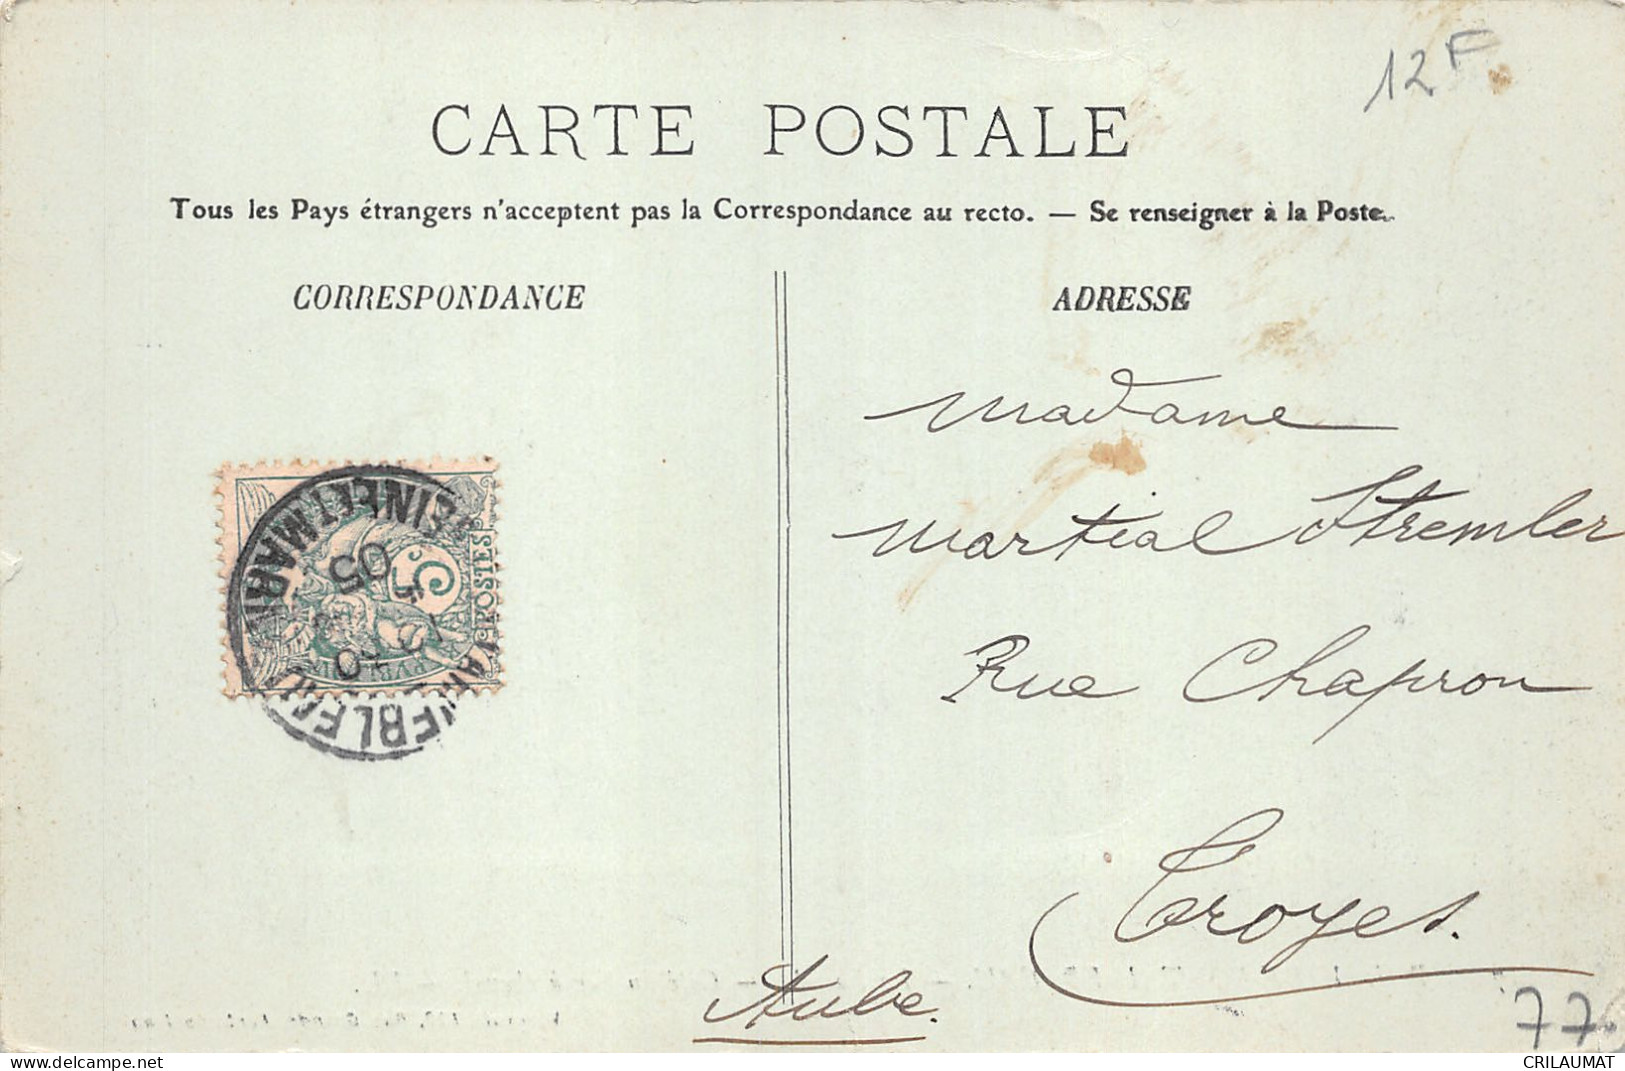 12F
CARTE POSTALE
Tous les Pays étrangers n'acceptent pas la Correspondance au recto. — Se renseigner à la Poste.
CORRESPONDANCE
ADRESSE
Madame
Martial Stremler
Rue Chapron
Troyes.
Aube.
5c
POSTES
SEINE ET MARNE
05
77
CRILAUMAT